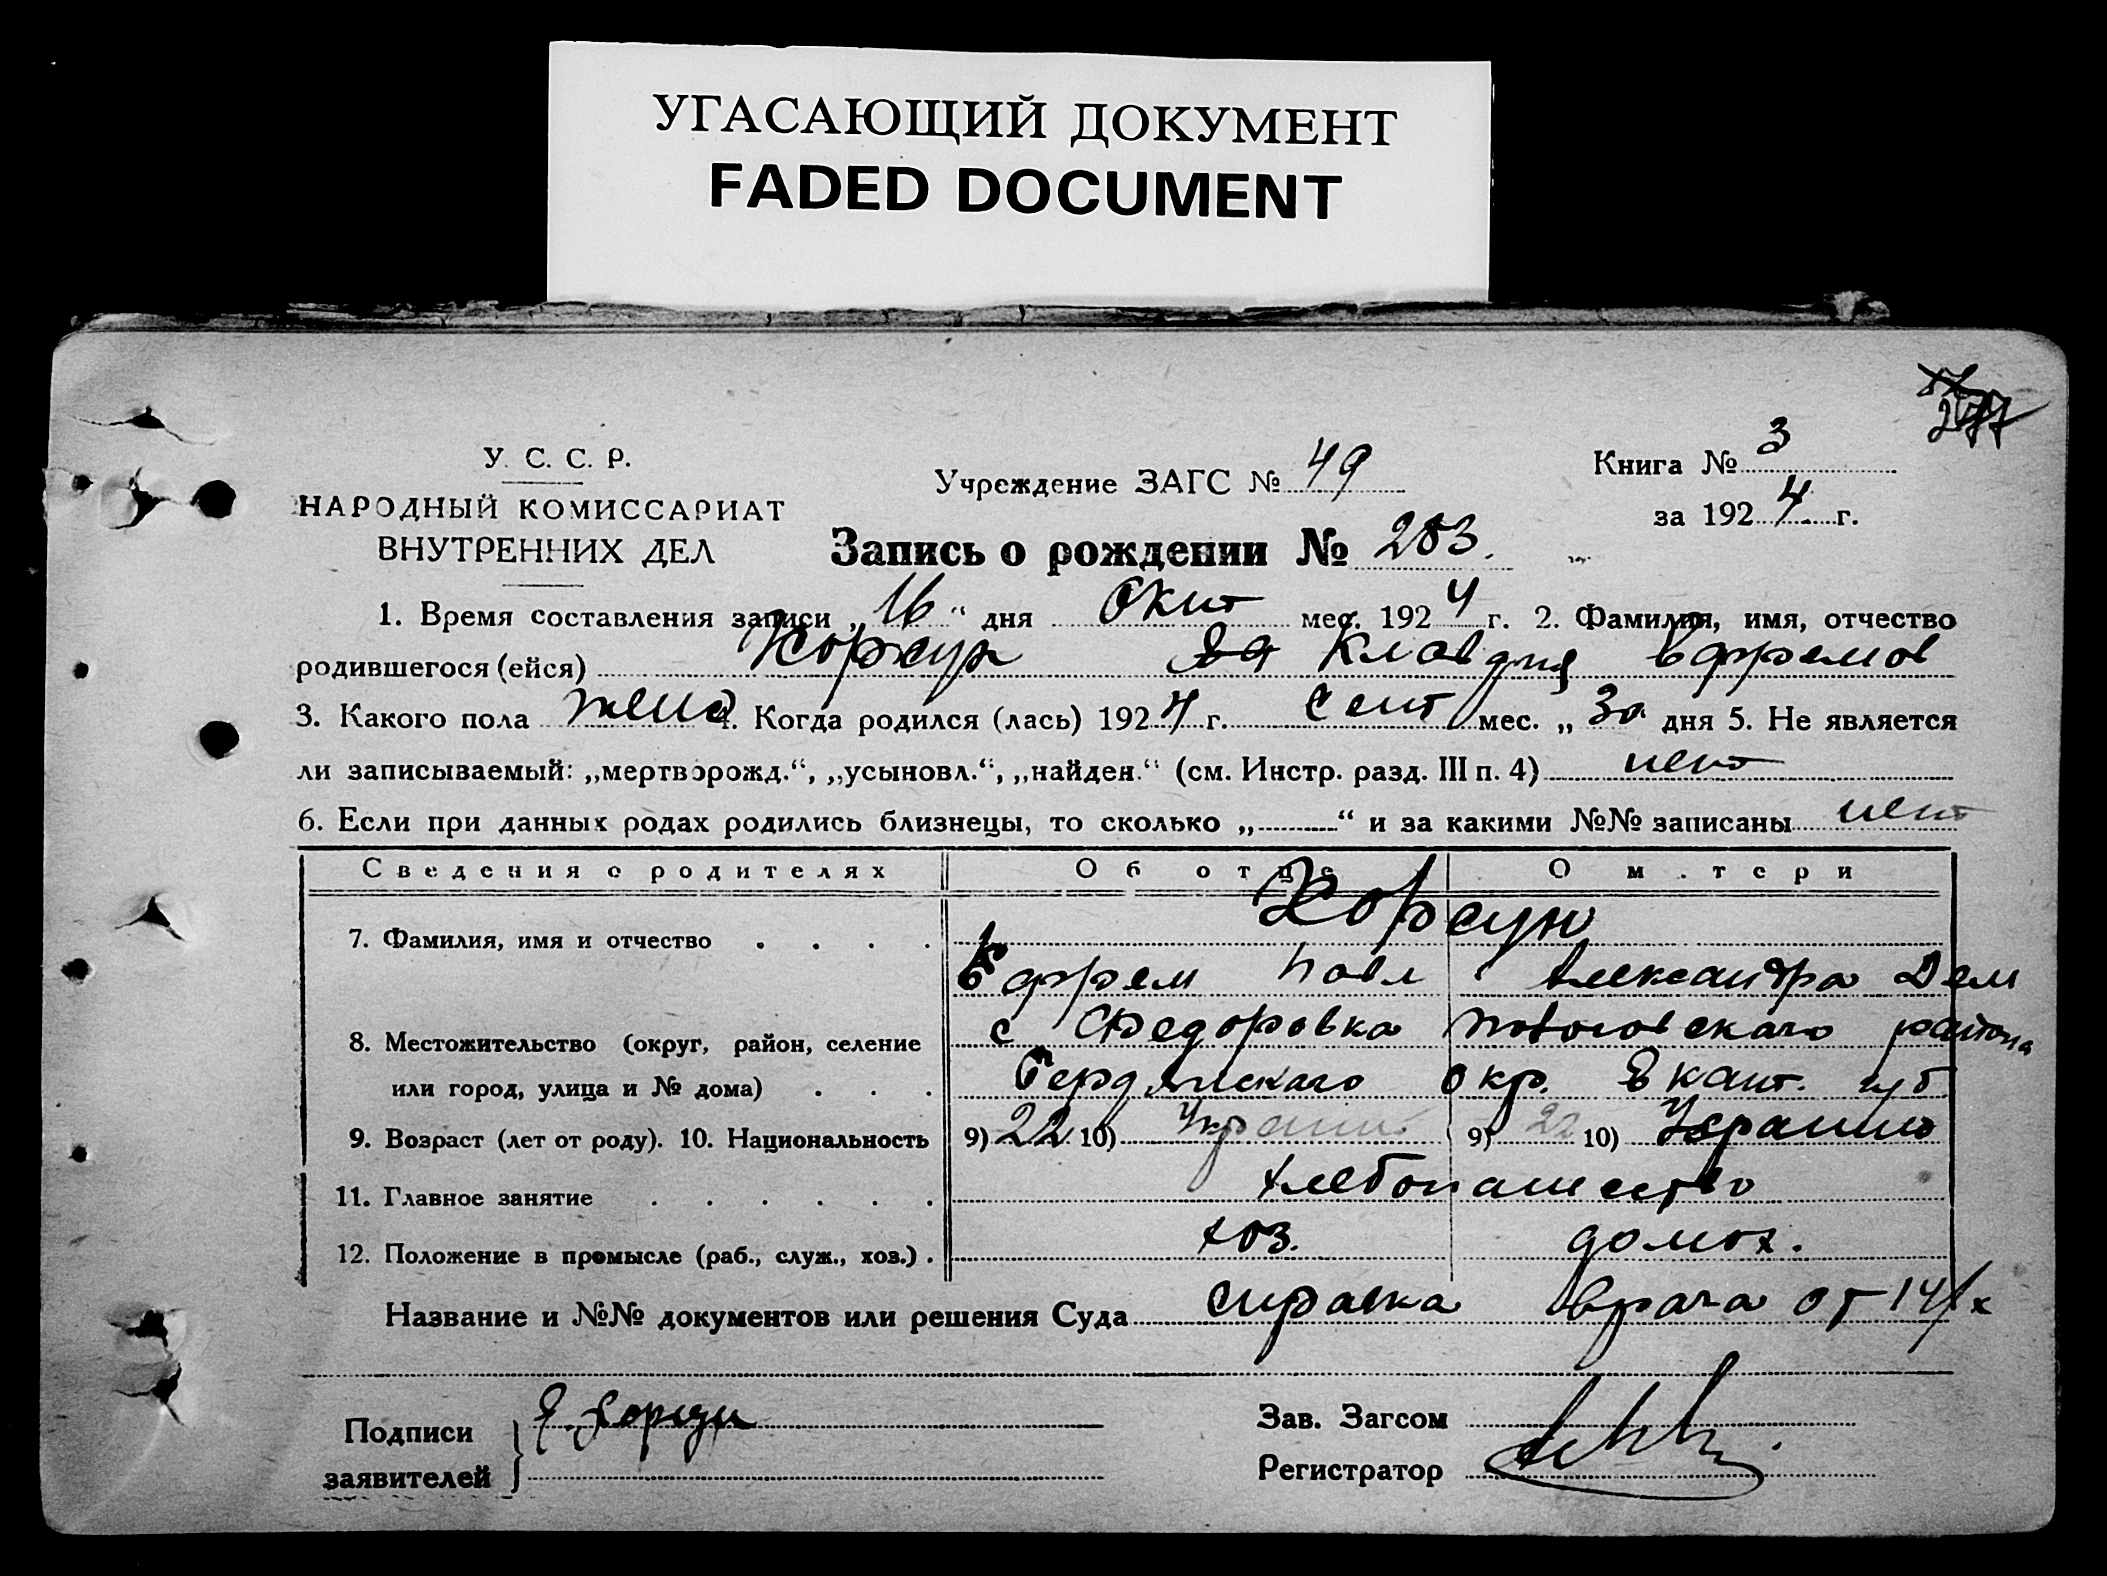 УГАСАЮЩИЙ ДОКУМЕНТ
FADED DOCUMENT
277
У. С. С. Р.
НАРОДНЫЙ КОМИССАРИАТ
ВНУТРЕННИХ ДЕЛ
Учреждение ЗАГС № 49
Книга № 3
за 1924 г.
Запись о рождении № 283.
1. Время составления записи „16“ дня Окт мес. 1924 г. 2. Фамилия, имя, отчество
родившегося (ейся) Корсун Клавдия Ефремов
3. Какого пола жен 4. Когда родился (лась) 1924 г. Сент мес. „30 дня 5. Не является
ли записываемый: „мертворожд.“, „усыновл.“, „найден.“ (см. Инстр. разд. III п. 4) нет
6. Если при данных родах родились близнецы, то сколько „ “ и за какими №№ записаны нет
Сведения о родителях Об отце О матери
7. Фамилия, имя и отчество . . . . Корсун
Ефрем Павл Александра Дем
8. Местожительство (округ, район, селение с Федоровка района
или город, улица и № дома) . . . Бердянскаго окр. Екат. губ
9. Возраст (лет от роду). 10. Национальность 9) 22 10) Украин 9) 22 10) Украинка
11. Главное занятие . . . . . . хлебопашество
12. Положение в промысле (раб., служ., хоз.) . хоз. домох.
Название и №№ документов или решения Суда справка врача от 14/x
Подписи
заявителей } Е. Корсун
Зав. Загсом
Регистратор